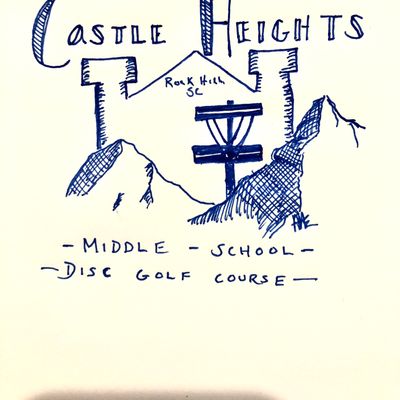 CASTLE HEIGHTS
Rock Hill
SC
- MIDDLE - SCHOOL -
- DISC GOLF COURSE -